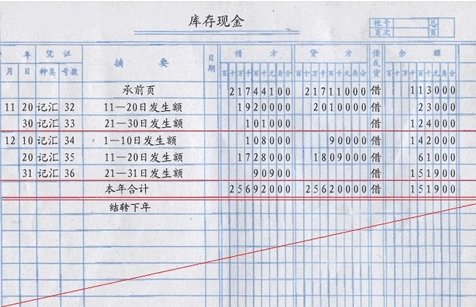 库存现金
帐号 总
页次 页
年 凭证 摘要 日期 借方 贷方 借或贷 余额
月 日 种类 号数 百十万千百十元角分 百十万千百十元角分 百十万千百十元角分
承前页 21744100 21711000 借 113000
11 20 记汇 32 11—20日发生额 1920000 2010000 借 23000
30 记汇 33 21—30日发生额 101000 借 124000
12 10 记汇 34 1—10日发生额 108000 90000 借 142000
20 记汇 35 11—20日发生额 1728000 1809000 借 61000
31 记汇 36 21—31日发生额 90900 借 151900
本年合计 25692000 25620000 借 151900
结转下年